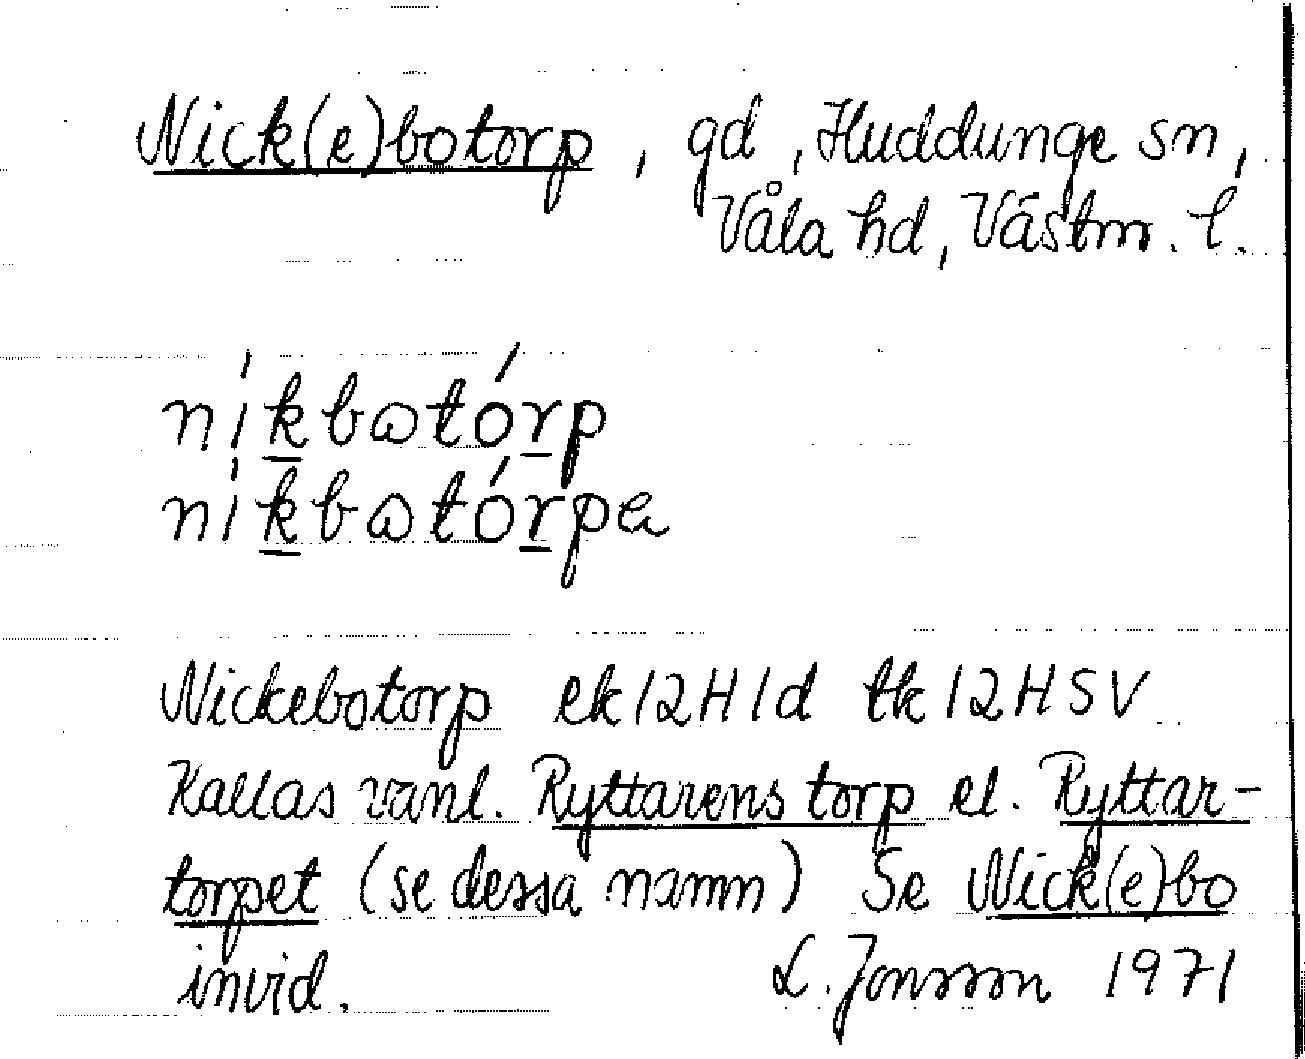 Nick(e)botorp, gd, Huddunge sn,
Våla hd, Västm. l.
níkbωtórp
níkbωtórpə
Nickebotorp ek 12H1d tk 12HSV
Kallas vanl. Ryttarens torp el. Ryttar-
torpet (se dessa namn) Se Nick(e)bo
invid. L. Jonsson 1971